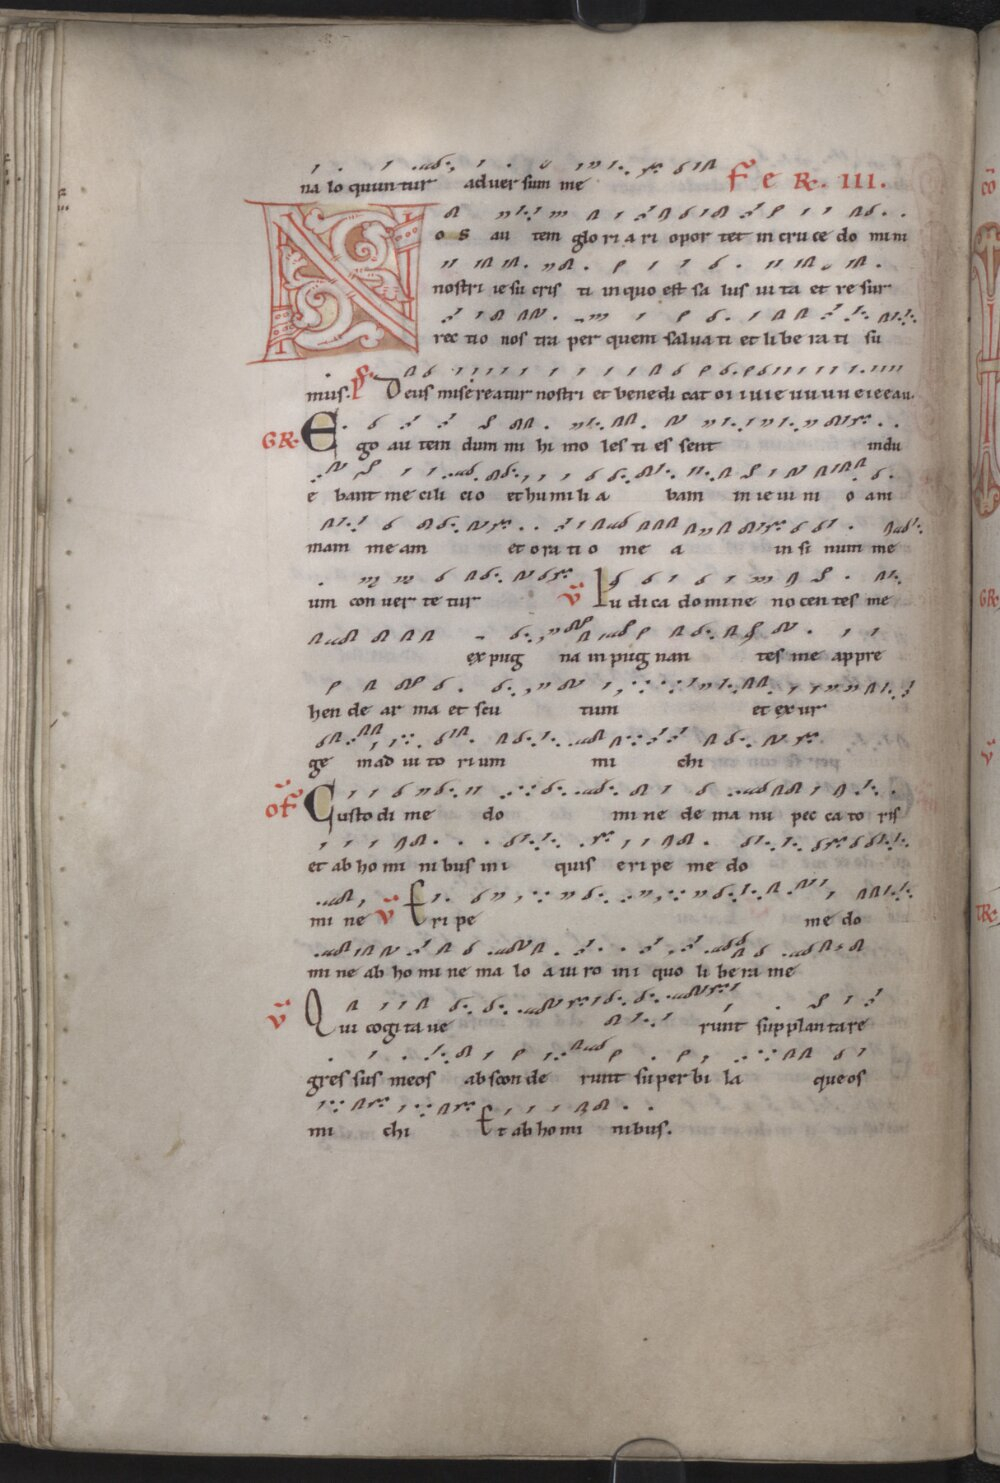 na lo quun tur ad ver sum me Fe R. III.
N os au tem glo ri a ri opor tet in cru ce do mini
nostri ie su cris ti in quo est sa lus ui ta et re sur
rec tio nos tra per quem salua ti et li be ra ti su
mus. Ps. Deus misereatur nostri et bene di cat
GR. Ego au tem dum mi hi mo les ti es sent indu
e bant me cili cio et humi li a bam in ie iu ni o am
mam me am et o ra ti o me a in si num me
um con uer te tur V Iu dica domine nocen tes me
ex pug na in pug nan tes me ap pre
hen de ar ma et scu tum et ex ur
ge in ad iu to rium mi chi
of Custo di me do mi ne de ma nu pec ca to ris
et ab ho mi ni bus ini quis e ri pe me do
mi ne V Eri pe me do
mi ne ab ho mi ne ma lo a ui ro ini quo li be ra me
V Qui cogi ta ue runt sup plan ta re
gres sus meos ab scon de runt su per bi la que os
mi chi Et ab ho mi nibus.
GR.
V
TR.